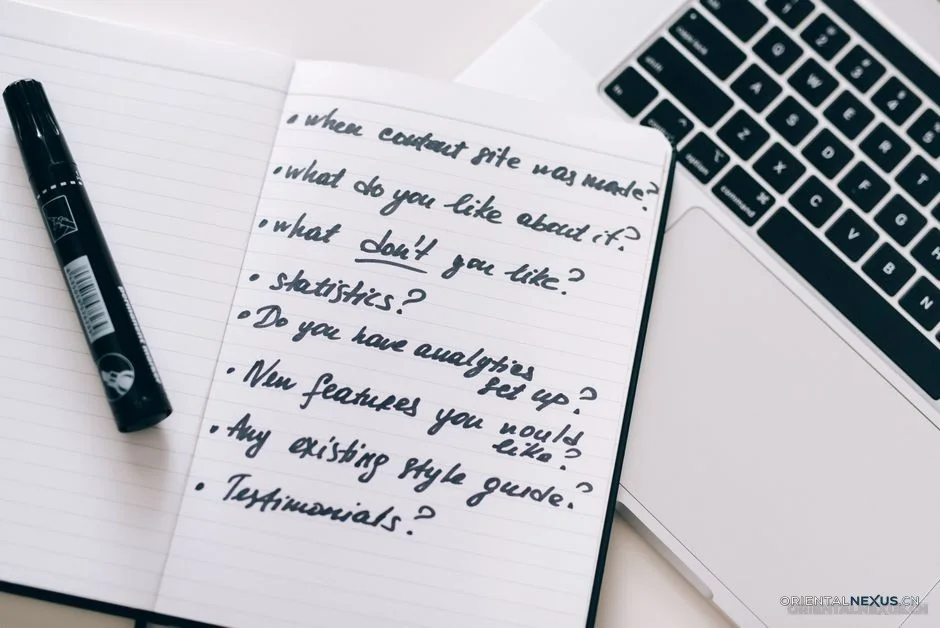 • when content site was made?
• what do you like about it?
• what don't you like?
• statistics?
• Do you have analytics
set up?
• New features you would
like?
• Any existing style guide?
• Testimonials?
Q
W
E
R
T
A
S
D
F
G
H
Z
X
C
V
B
N
2
3
4
5
fn
option
command
ORIENTALNEXUS.CN